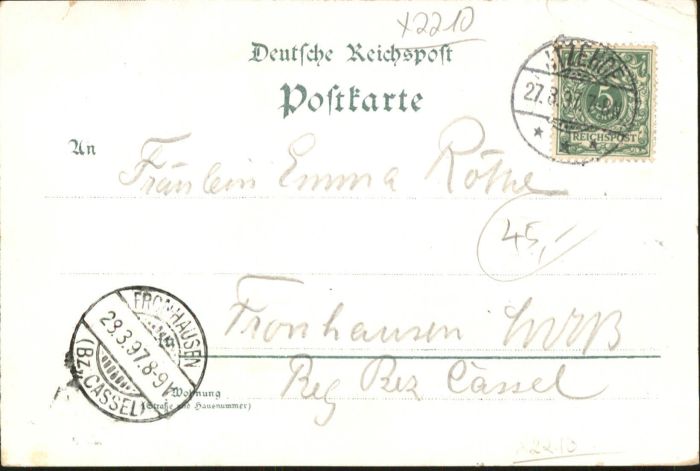 x2210
Deutsche Reichspost
Postkarte
ITZEHOE
27.3.97.
5
REICHSPOST
An
Fräulein Emma Röthe
45,-
FRONHAUSEN
28.3.97.8-9
(Bz. CASSEL)
Fronhausen
Reg Bez Cassel
Wohnung
(Straße und Hausnummer)
x2210